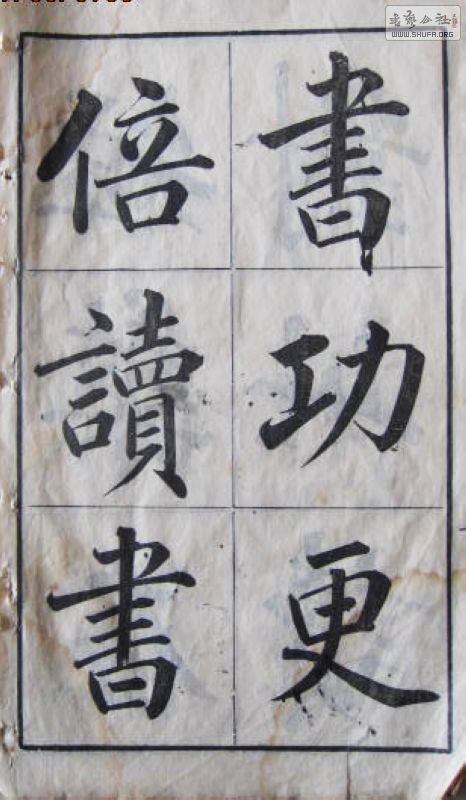 書功更
倍讀書
WWW.SHUFA.ORG